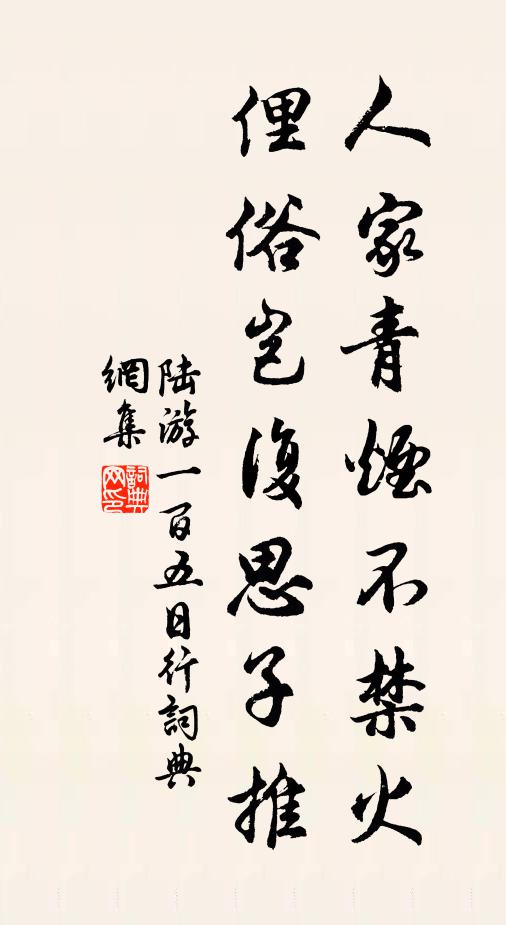 人家青煙不禁火
俚俗豈復思子推
陆游一百五日行詞典
網集
詞典网印